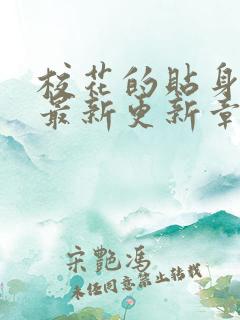 校花的贴身
最新更新章
宋艳冯
未经同意禁止转载